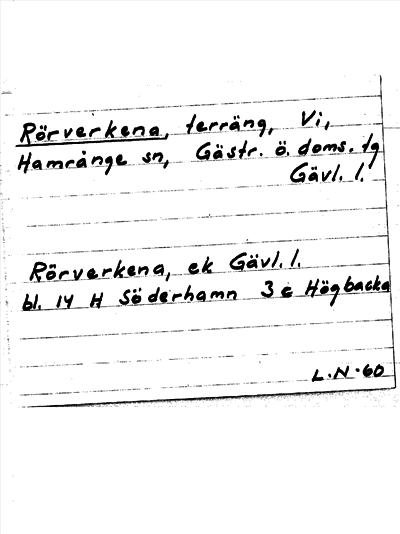 Rörverkena, terräng, Vi,
Hamrånge sn, Gästr. ö. doms. tg
Gävl. l.
Rörverkena, ek Gävl. l.
bl. 14 H Söderhamn 3 c Högbacka
L.N.60